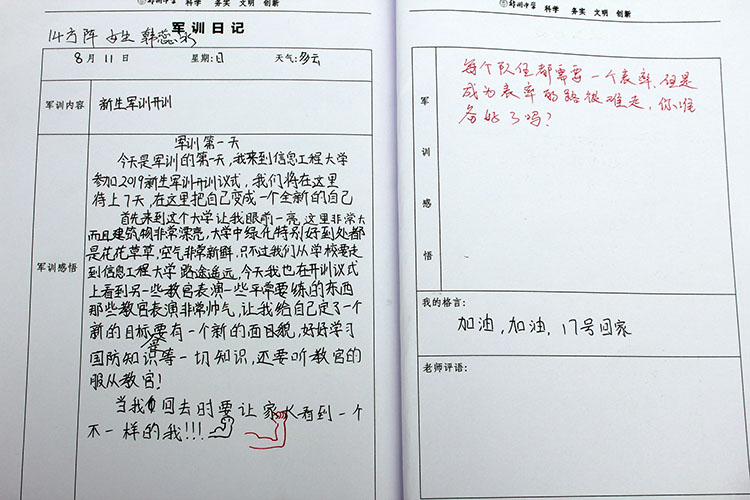 郑州中学 科学 务实 文明 创新
军训日记
14方阵 女生 韩蕊
8月11日 星期:日 天气:多云
军训内容 新生军训开训
军训感悟
军训第一天
今天是军训的第一天,我来到信息工程大学
参加2019新生军训开训议式,我们将在这里
待上7天,在这里把自己变成一个全新的自己
首先来到这个大学让我眼前一亮,这里非常大
而且建筑物非常漂亮,大学中绿化特别好到处都
是花花草草,空气非常新鲜,只不过我们从学校要走
到信息工程大学路途遥远,今天我也在开训议式
上看到另一些教官表演一些平常要练的东西
那些教官表演非常帅气,让我给自己定了一个
新的目标要有一个新的面目貌,好好学习
国防知识等一切知识,还要听教官的
服从教官!
当我们回去时要让家人看到一个
不一样的我!!!
郑州中学 科学 务实 文明 创新
军训感悟
每个队伍都需要一个表率,但是
成为表率的路很难走,你准
备好了吗?
我的格言:
加油,加油,17号回家
老师评语: